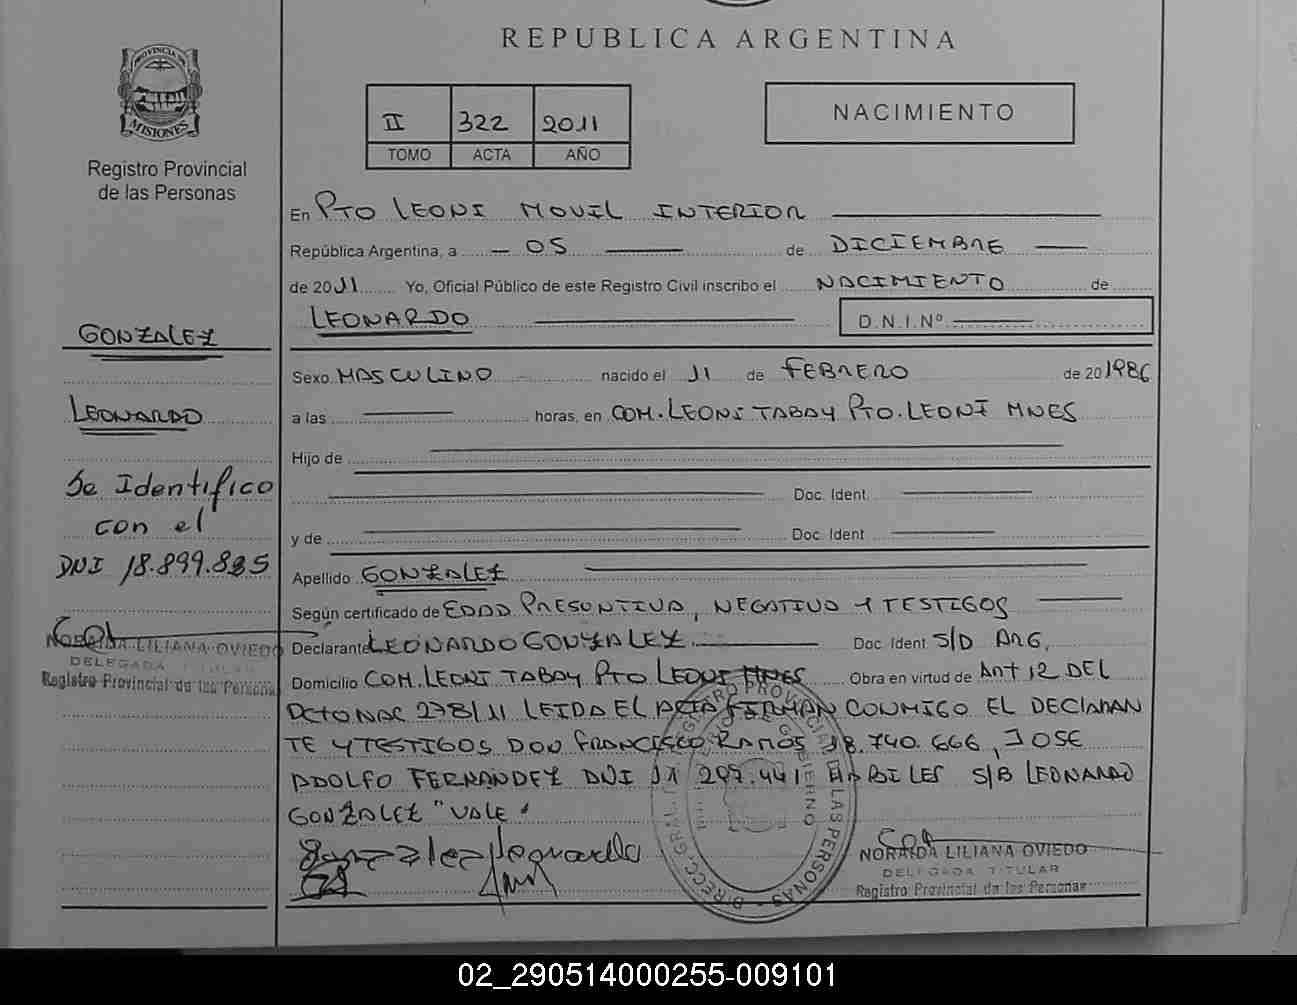 REPUBLICA ARGENTINA
PROVINCIA DE
MISIONES
Registro Provincial
de las Personas
II 322 2011
TOMO ACTA AÑO
NACIMIENTO
En PTO LEONI MOVIL INTERIOR
República Argentina, a 05 de DICIEMBRE
de 2011 Yo, Oficial Público de este Registro Civil inscribo el NACIMIENTO de
LEONARDO D.N.I.Nº
GONZALEZ
LEONARDO
Se Identifico
con el
DNI 18.899.885
NORAIDA LILIANA OVIEDO
DELEGADA TITULAR
Registro Provincial de las Personas
Sexo MASCULINO nacido el 11 de FEBRERO de 201986
a las horas, en COM. LEONI TABAY PTO. LEONI MNES
Hijo de
Doc. Ident.
y de Doc. Ident
Apellido GONZALEZ
Según certificado de EDAD PRESUNTIVA, NEGATIVO Y TESTIGOS
Declarante LEONARDO GONZALEZ Doc. Ident S/D ARG.
Domicilio COM. LEONI TABAY PTO LEONI MNES Obra en virtud de ART 12 DEL
DCTO NAC 278/11 LEIDA EL ACTA FIRMAN CONMIGO EL DECLARAN
TE Y TESTIGOS DON FRANCISCO RAMOS 18.740.666, JOSE
ADOLFO FERNANDEZ DNI 11 297.441 HABILES S/B LEONARDO
GONZALEZ "VALE"
Gonzalez Leonardo
DIRECC. GRAL. REGISTRO PROVINCIAL DE LAS PERSONAS
GOBIERNO
NORAIDA LILIANA OVIEDO
DELEGADA TITULAR
Registro Provincial de las Personas
02_290514000255-009101